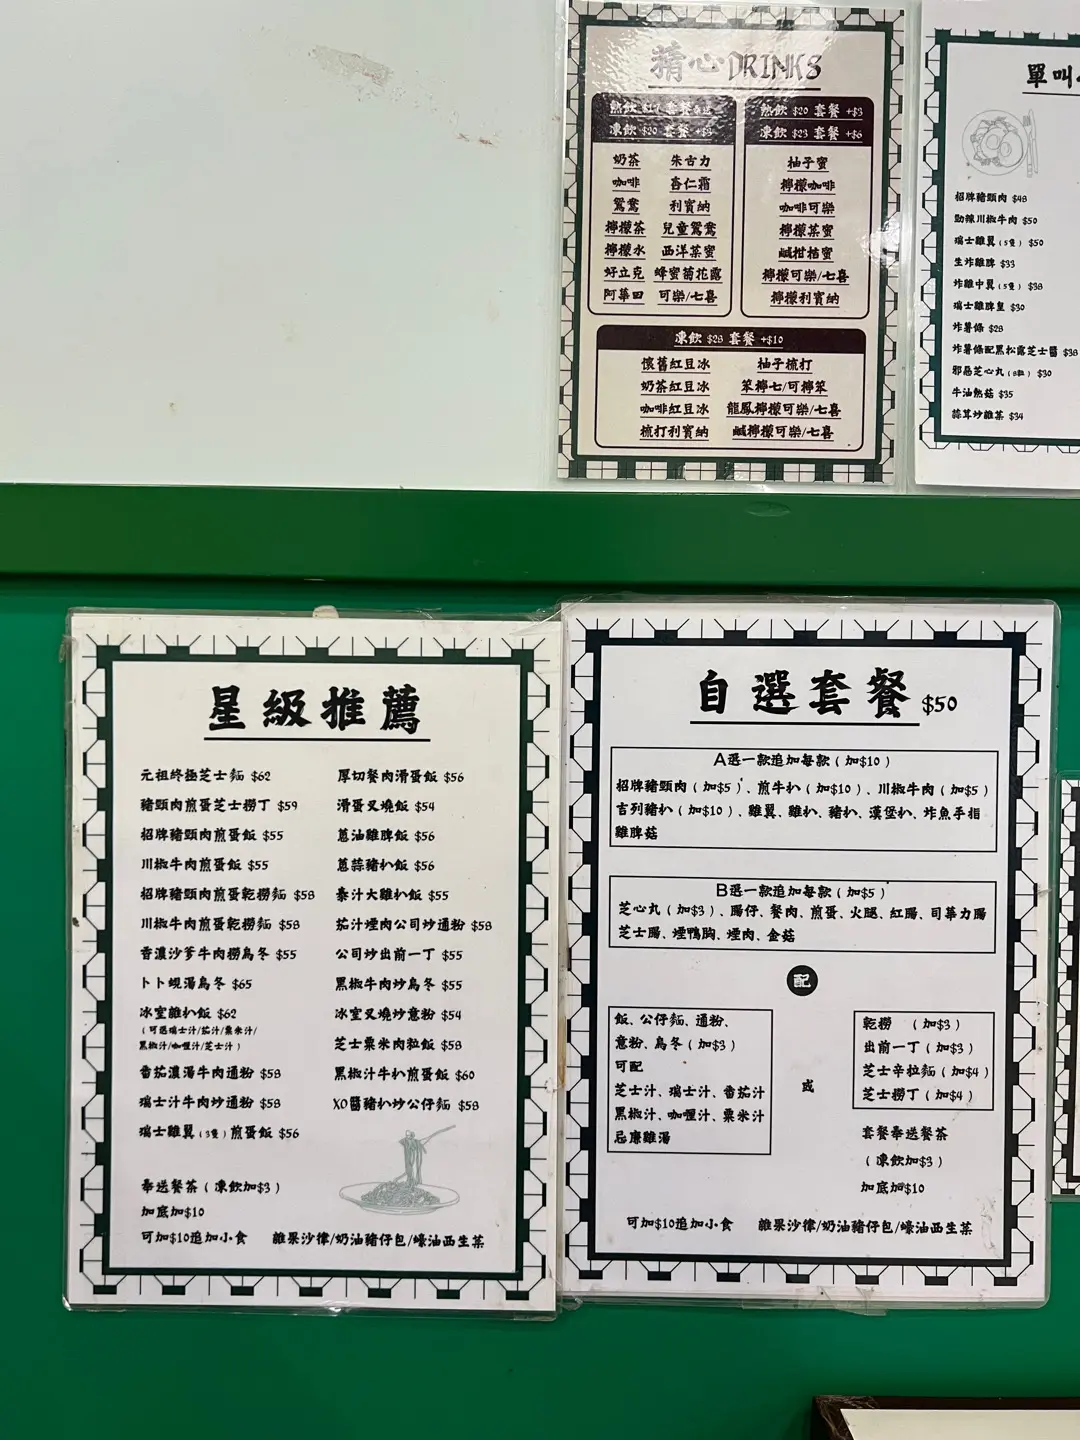 精心DRINKS
熱飲 $17 套餐奉送
凍飲 $20 套餐 +$3
奶茶 朱古力
咖啡 杏仁霜
鴛鴦 利賓納
檸檬茶 兒童鴛鴦
檸檬水 西洋菜蜜
好立克 蜂蜜菊花露
阿華田 可樂/七喜
熱飲 $20 套餐 +$3
凍飲 $23 套餐 +$6
柚子蜜
檸檬咖啡
咖啡可樂
檸檬菜蜜
鹹柑桔蜜
檸檬可樂/七喜
檸檬利賓納
凍飲 $28 套餐 +$10
懷舊紅豆冰 柚子梳打
奶茶紅豆冰 笨檸七/可檸笨
咖啡紅豆冰 龍鳳檸檬可樂/七喜
梳打利賓納 鹹檸檬可樂/七喜
單叫
招牌豬頸肉 $48
勁辣川椒牛肉 $50
瑞士雞翼（5隻）$50
生炸雞脾 $33
炸雞中翼（5隻）$38
瑞士雞脾皇 $30
炸薯條 $28
炸薯條配黑松露芝士醬 $38
邪惡芝心丸（8粒）$30
牛油焗菇 $35
蒜茸炒雜菜 $34
星級推薦
元祖終極芝士麵 $62
豬頸肉煎蛋芝士撈丁 $59
招牌豬頸肉煎蛋飯 $55
川椒牛肉煎蛋飯 $55
招牌豬頸肉煎蛋乾撈麵 $58
川椒牛肉煎蛋乾撈麵 $58
香濃沙爹牛肉撈烏冬 $55
卜卜蜆湯烏冬 $65
冰室雞扒飯 $62
（可選瑞士汁/茄汁/粟米汁/
黑椒汁/咖喱汁/芝士汁）
番茄濃湯牛肉通粉 $58
瑞士汁牛肉炒通粉 $58
瑞士雞翼（3隻）煎蛋飯 $56
厚切餐肉滑蛋飯 $56
滑蛋叉燒飯 $54
蔥油雞脾飯 $56
蔥蒜豬扒飯 $56
燒汁大雞扒飯 $55
茄汁煙肉公司炒通粉 $58
公司炒出前一丁 $55
黑椒牛肉炒烏冬 $55
冰室叉燒炒意粉 $54
芝士粟米肉粒飯 $58
黑椒汁牛扒煎蛋飯 $60
XO醬豬扒炒公仔麵 $58
奉送餐茶（凍飲加$3）
加底加$10
可加$10追加小食 雜果沙律/奶油豬仔包/蠔油西生菜
自選套餐 $50
A選一款追加每款（加$10）
招牌豬頸肉（加$5）、煎牛扒（加$10）、川椒牛肉（加$5）
吉列豬扒（加$10）、雞翼、雞扒、豬扒、漢堡扒、炸魚手指
雞脾菇
B選一款追加每款（加$5）
芝心丸（加$3）、腸仔、餐肉、煎蛋、火腿、紅腸、司華力腸
芝士腸、煙鴨胸、煙肉、金菇
配
飯、公仔麵、通粉、
意粉、烏冬（加$3）
可配
芝士汁、瑞士汁、番茄汁
黑椒汁、咖喱汁、粟米汁
忌廉雞湯
或
乾撈 （加$3）
出前一丁（加$3）
芝士辛拉麵（加$4）
芝士撈丁（加$4）
套餐奉送餐茶
（凍飲加$3）
加底加$10
可加$10追加小食 雜果沙律/奶油豬仔包/蠔油西生菜